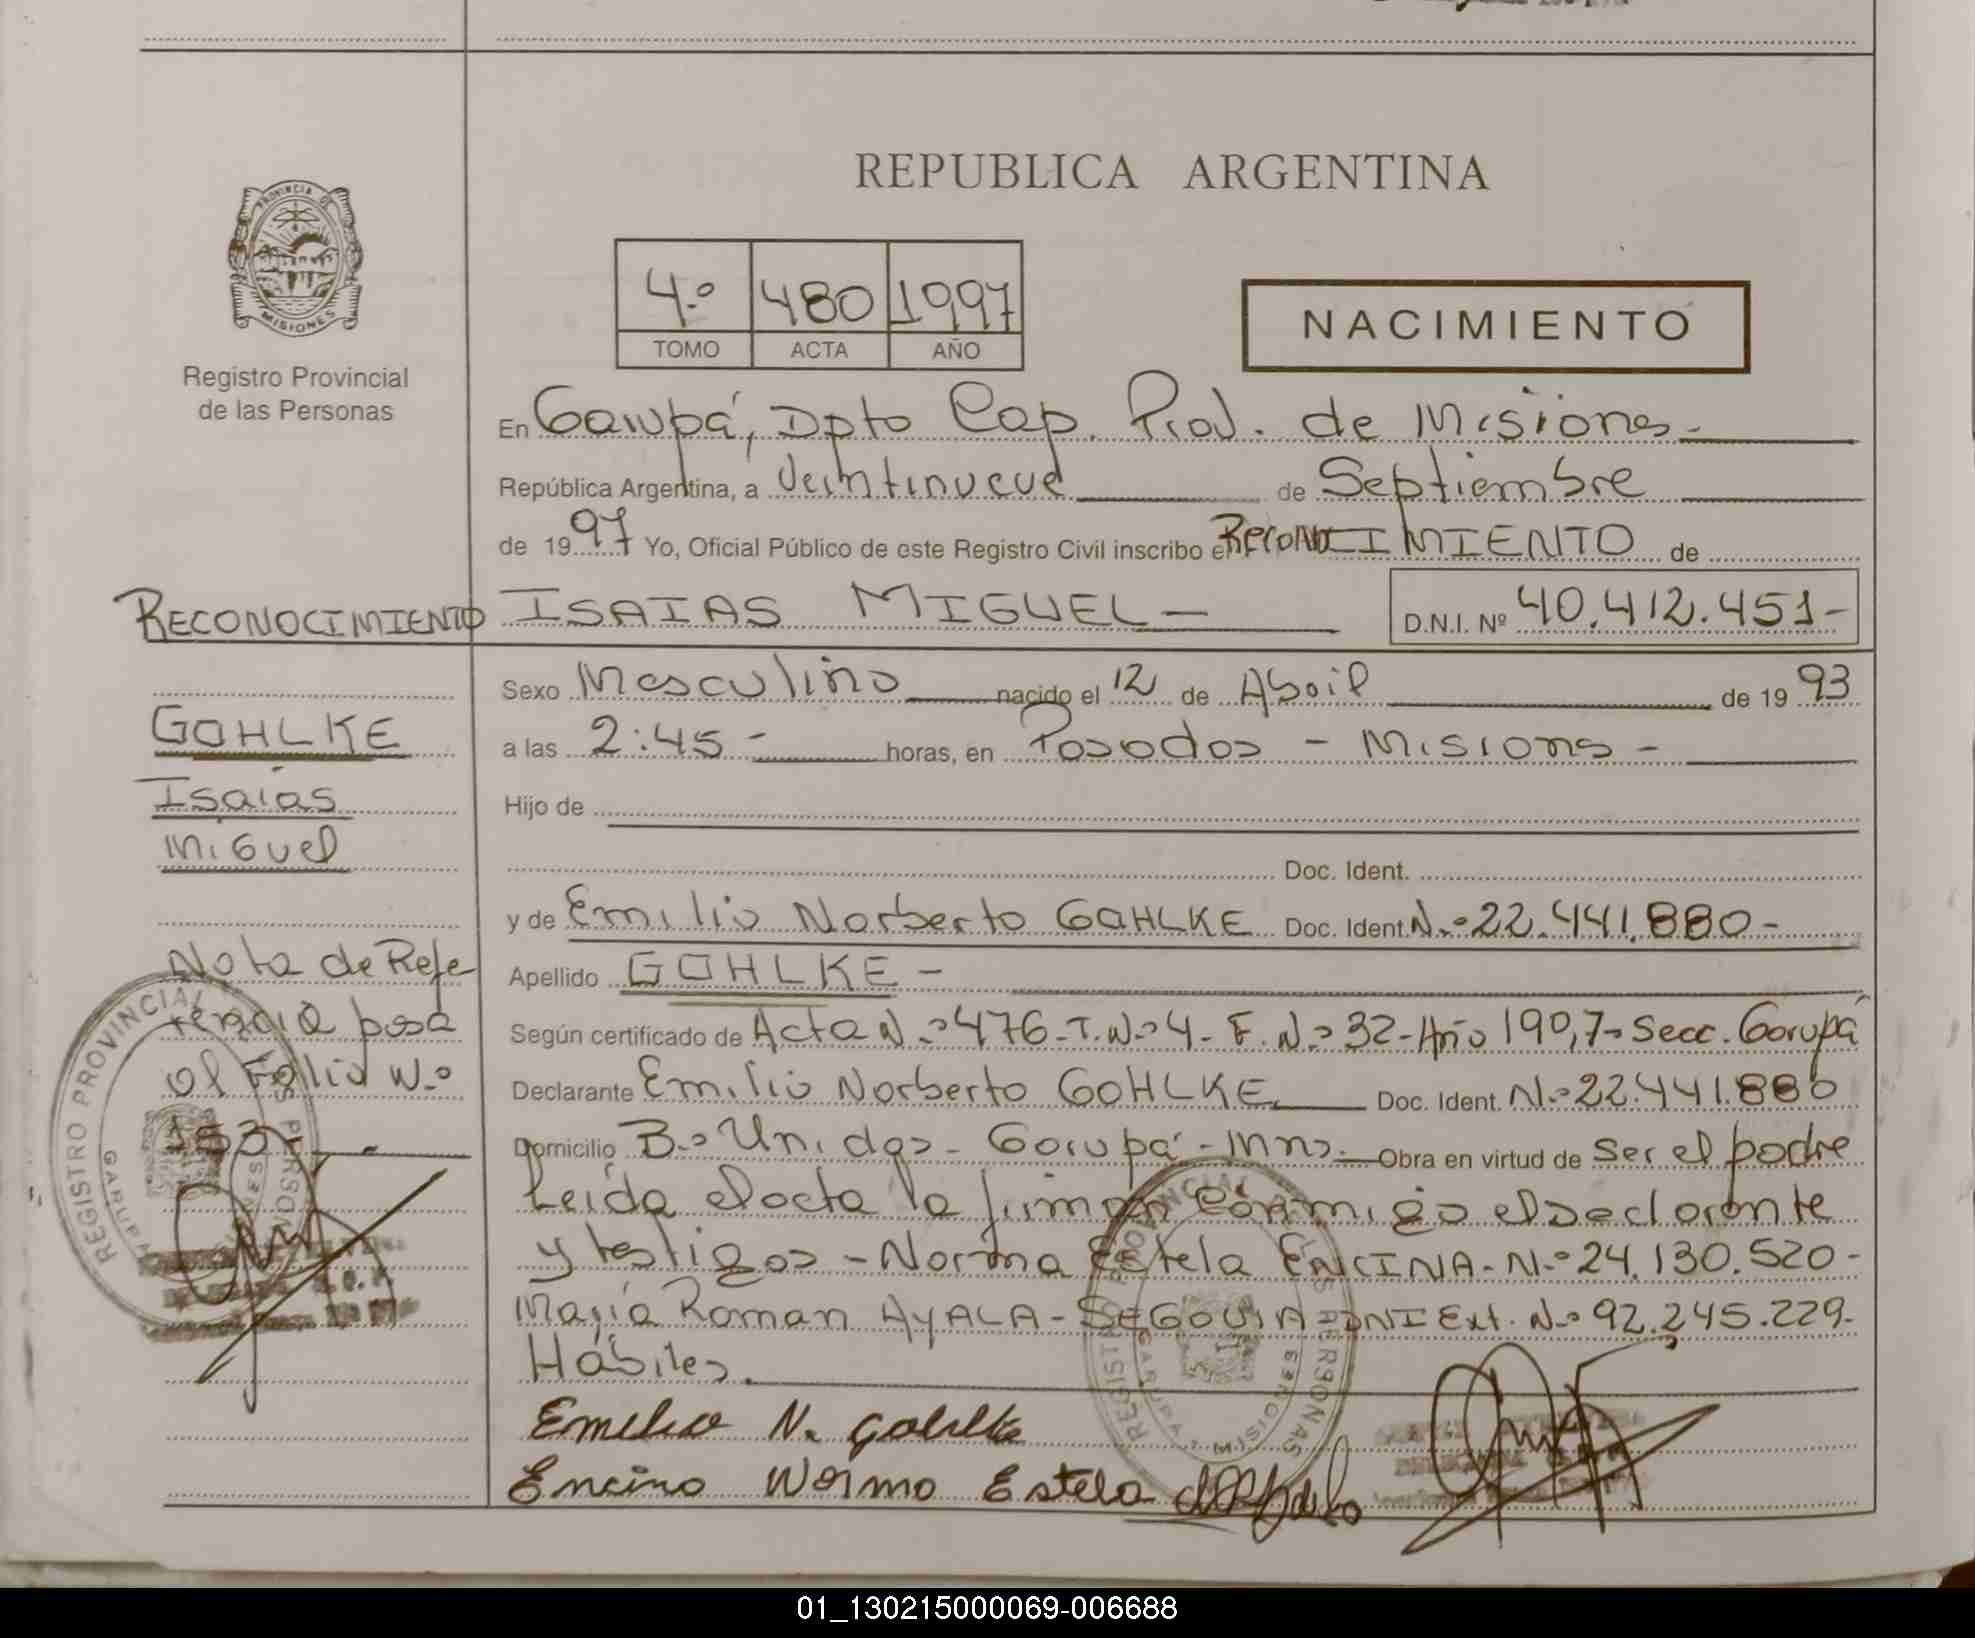 REPUBLICA ARGENTINA
PROVINCIA DE
MISIONES
Registro Provincial
de las Personas
4.º 480 1997
TOMO ACTA AÑO
NACIMIENTO
En Garupá, Dpto Cap. Prov. de Misiones.-
República Argentina, a Veintinueve de Septiembre
de 1997 Yo, Oficial Público de este Registro Civil inscribo el RECONOCIMIENTO de
RECONOCIMIENTO
ISAIAS MIGUEL - D.N.I. Nº 40.412.451-
Sexo Masculino nacido el 12 de Abril de 1993
a las 2:45 - horas, en Posadas - Misiones -
Hijo de
Doc. Ident.
y de Emilio Norberto GOHLKE Doc. Ident. N.º 22.441.880-
Apellido GOHLKE -
Según certificado de Acta N.º 476-T.Nº 4- F.N.º 32-Año 1997- Secc. Garupá
Declarante Emilio Norberto GOHLKE Doc. Ident. N.º 22.441.880
Domicilio B.º Unidos - Garupá - Mns. Obra en virtud de ser el padre
Leída el acta la firman conmigo el Declarante
y testigos - Norma Estela ENCINA - N.º 24.130.520-
María Roman AYALA-SEGOVIA DNI Ext. N.º 92.245.229-
Hábiles.
Emilio N. Gohlke
Encina Norma Estela
GOHLKE
Isaías
Miguel
Nota de Refe
rencia pasa
al Folio N.º
153-
REGISTRO PROVINCIAL DE LAS PERSONAS
GARUPA MISIONES
REGISTRO PROVINCIAL DE LAS PERSONAS
GARUPA MISIONES
01_130215000069-006688